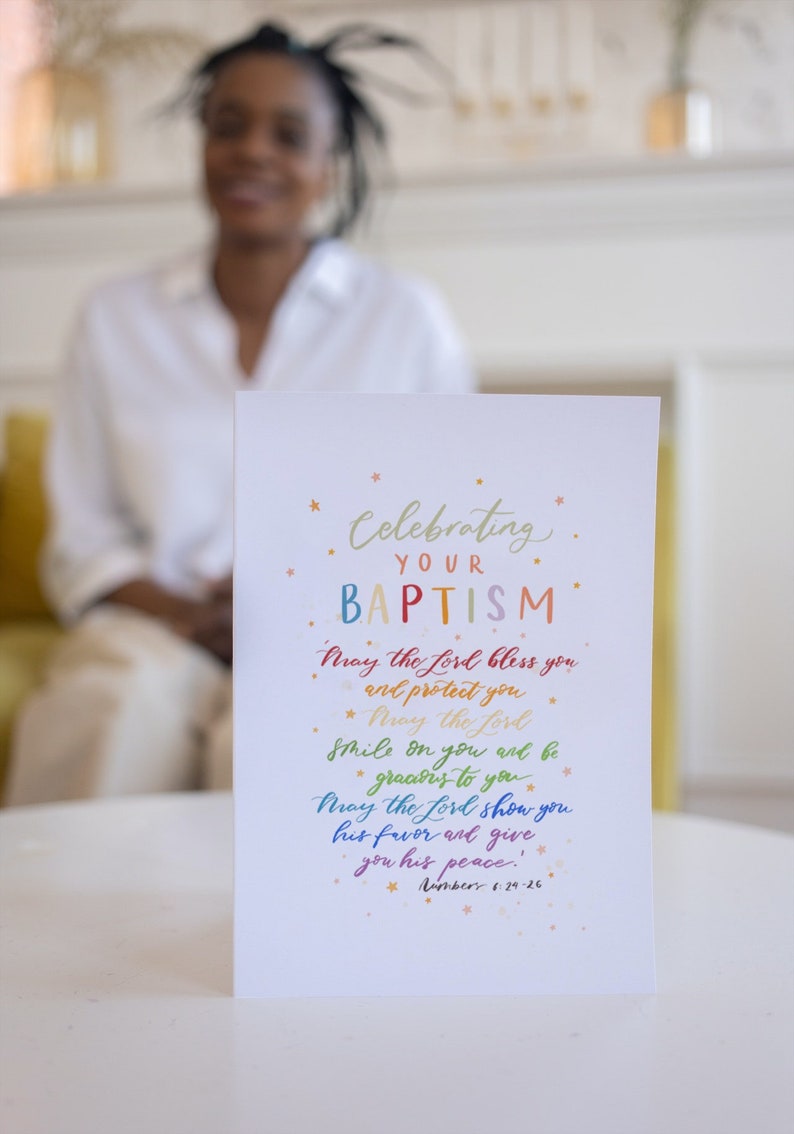 Celebrating
YOUR
BAPTISM
'May the Lord bless you
and protect you
May the Lord
smile on you and be
gracious to you
May the Lord show you
his favor and give
you his peace.'
Numbers 6:24-26